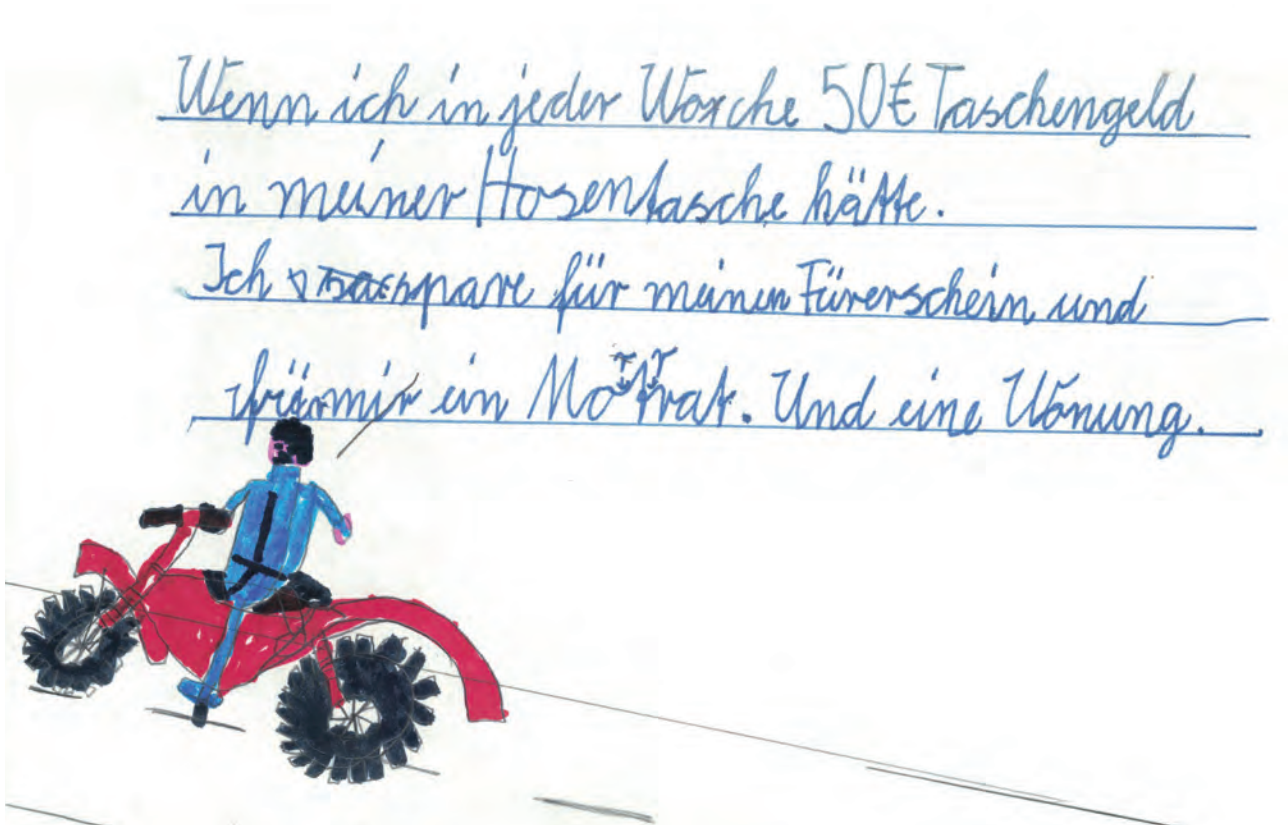 Wenn ich in jeder Worche 50€ Taschengeld
in meiner Hosentasche hätte.
Ich spare für meinen Fürerschein und
für mir ein Motrrat. Und eine Wonung.